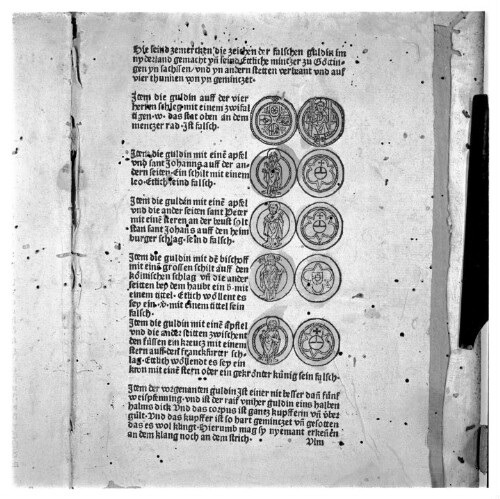 Hie seind zemercken die zeichen der falschen guldin im
nyderland gemacht vñ seind Ettliche mintzer zu Götin-
gen yn sachssen/vnd yn andern stetten verwant vnd auf
vier thunnen von yn gemintzet.
Item die guldin auff der vier
herren schleg mit einem zwifal-
tigen .w. das stat oben an dem
mentzer rad. Ist falsch.
Item die guldin mit eine͂ apfel
vnd sant Johanns auff der an-
dern seiten. Ein schilt mit einem
leo. Ettlich seind falsch.
Item die guldin mit eine͂ apfel
vnd die ander seiten sant Peter
mit eine͂ steren an der brust solt
stan sant Johans auff den heim
burger schlag. seind falsch.
Item die guldin mit de͂ bischoff
mit eine͂ grossen schilt auff den
kölnischen schlag vn̄ die ander
seitten bey dem haubt ein .b. mit
einem tittel. Etlich wöllent es
sey ein .v. mit einem tittel sein
falsch.
Item die guldin mit eine͂ apffel
vnd die ander seitten zwischent
den füssen ein kreucz mit einem
stern auff den franckfurter sch-
lag. Ettlich wöllendt es sey ein
kron mit eine͂ stern oder ein gekrönter künig sein falsch.
Item der vorgenanten guldin Ist einer nit besser dan̄ fünff
weispfenning. vnd ist der raiff vmher guldin eins halben
halms dick Vnd das corpus ist gantz kupfferin vn̄ über
gült. Vnd das kupffer ist so hart gemintzet vn̄ gesotten
das es wol klingt. Hierumb mag sy nyemant erkeñen
an dem klang noch an dem strich. Vlm